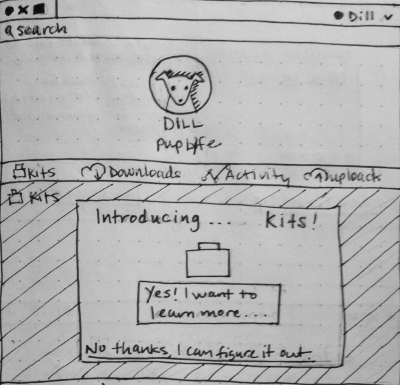 Dill
search
DILL
pup life
kits Downloads Activity uploads
Kits
Introducing ... Kits!
Yes! I want to
learn more....
No thanks, I can figure it out.